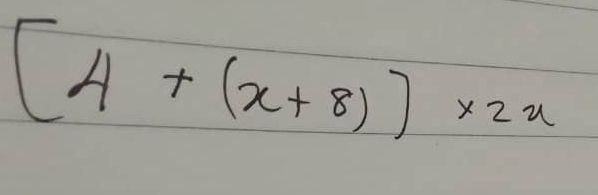 [4 + (x+8)] × 2x